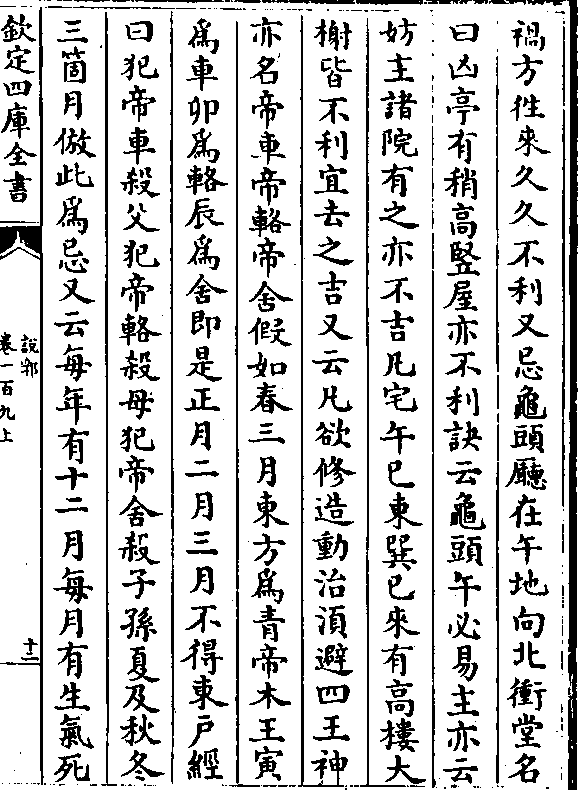 禍方徃來久久不利又忌龜頭廳在午地向北衝堂名
曰凶亭有稍高竪屋亦不利訣云龜頭午必易主亦云
妨主諸院有之亦不吉凡宅午已東巽已來有高樓大
榭皆不利宜去之吉又云凡欲修造動治湏避四王神
亦名帝車帝輅帝舍假如春三月東方爲青帝木王寅
爲車卯爲輅辰爲舍即是正月二月三月不得東户經
曰犯帝車殺父犯帝輅殺母犯帝舍殺子孫夏及秋冬
三箇月倣此爲忌又云每年有十二月每月有生氣死
欽定四庫全書
說郛
卷一百九上
十二